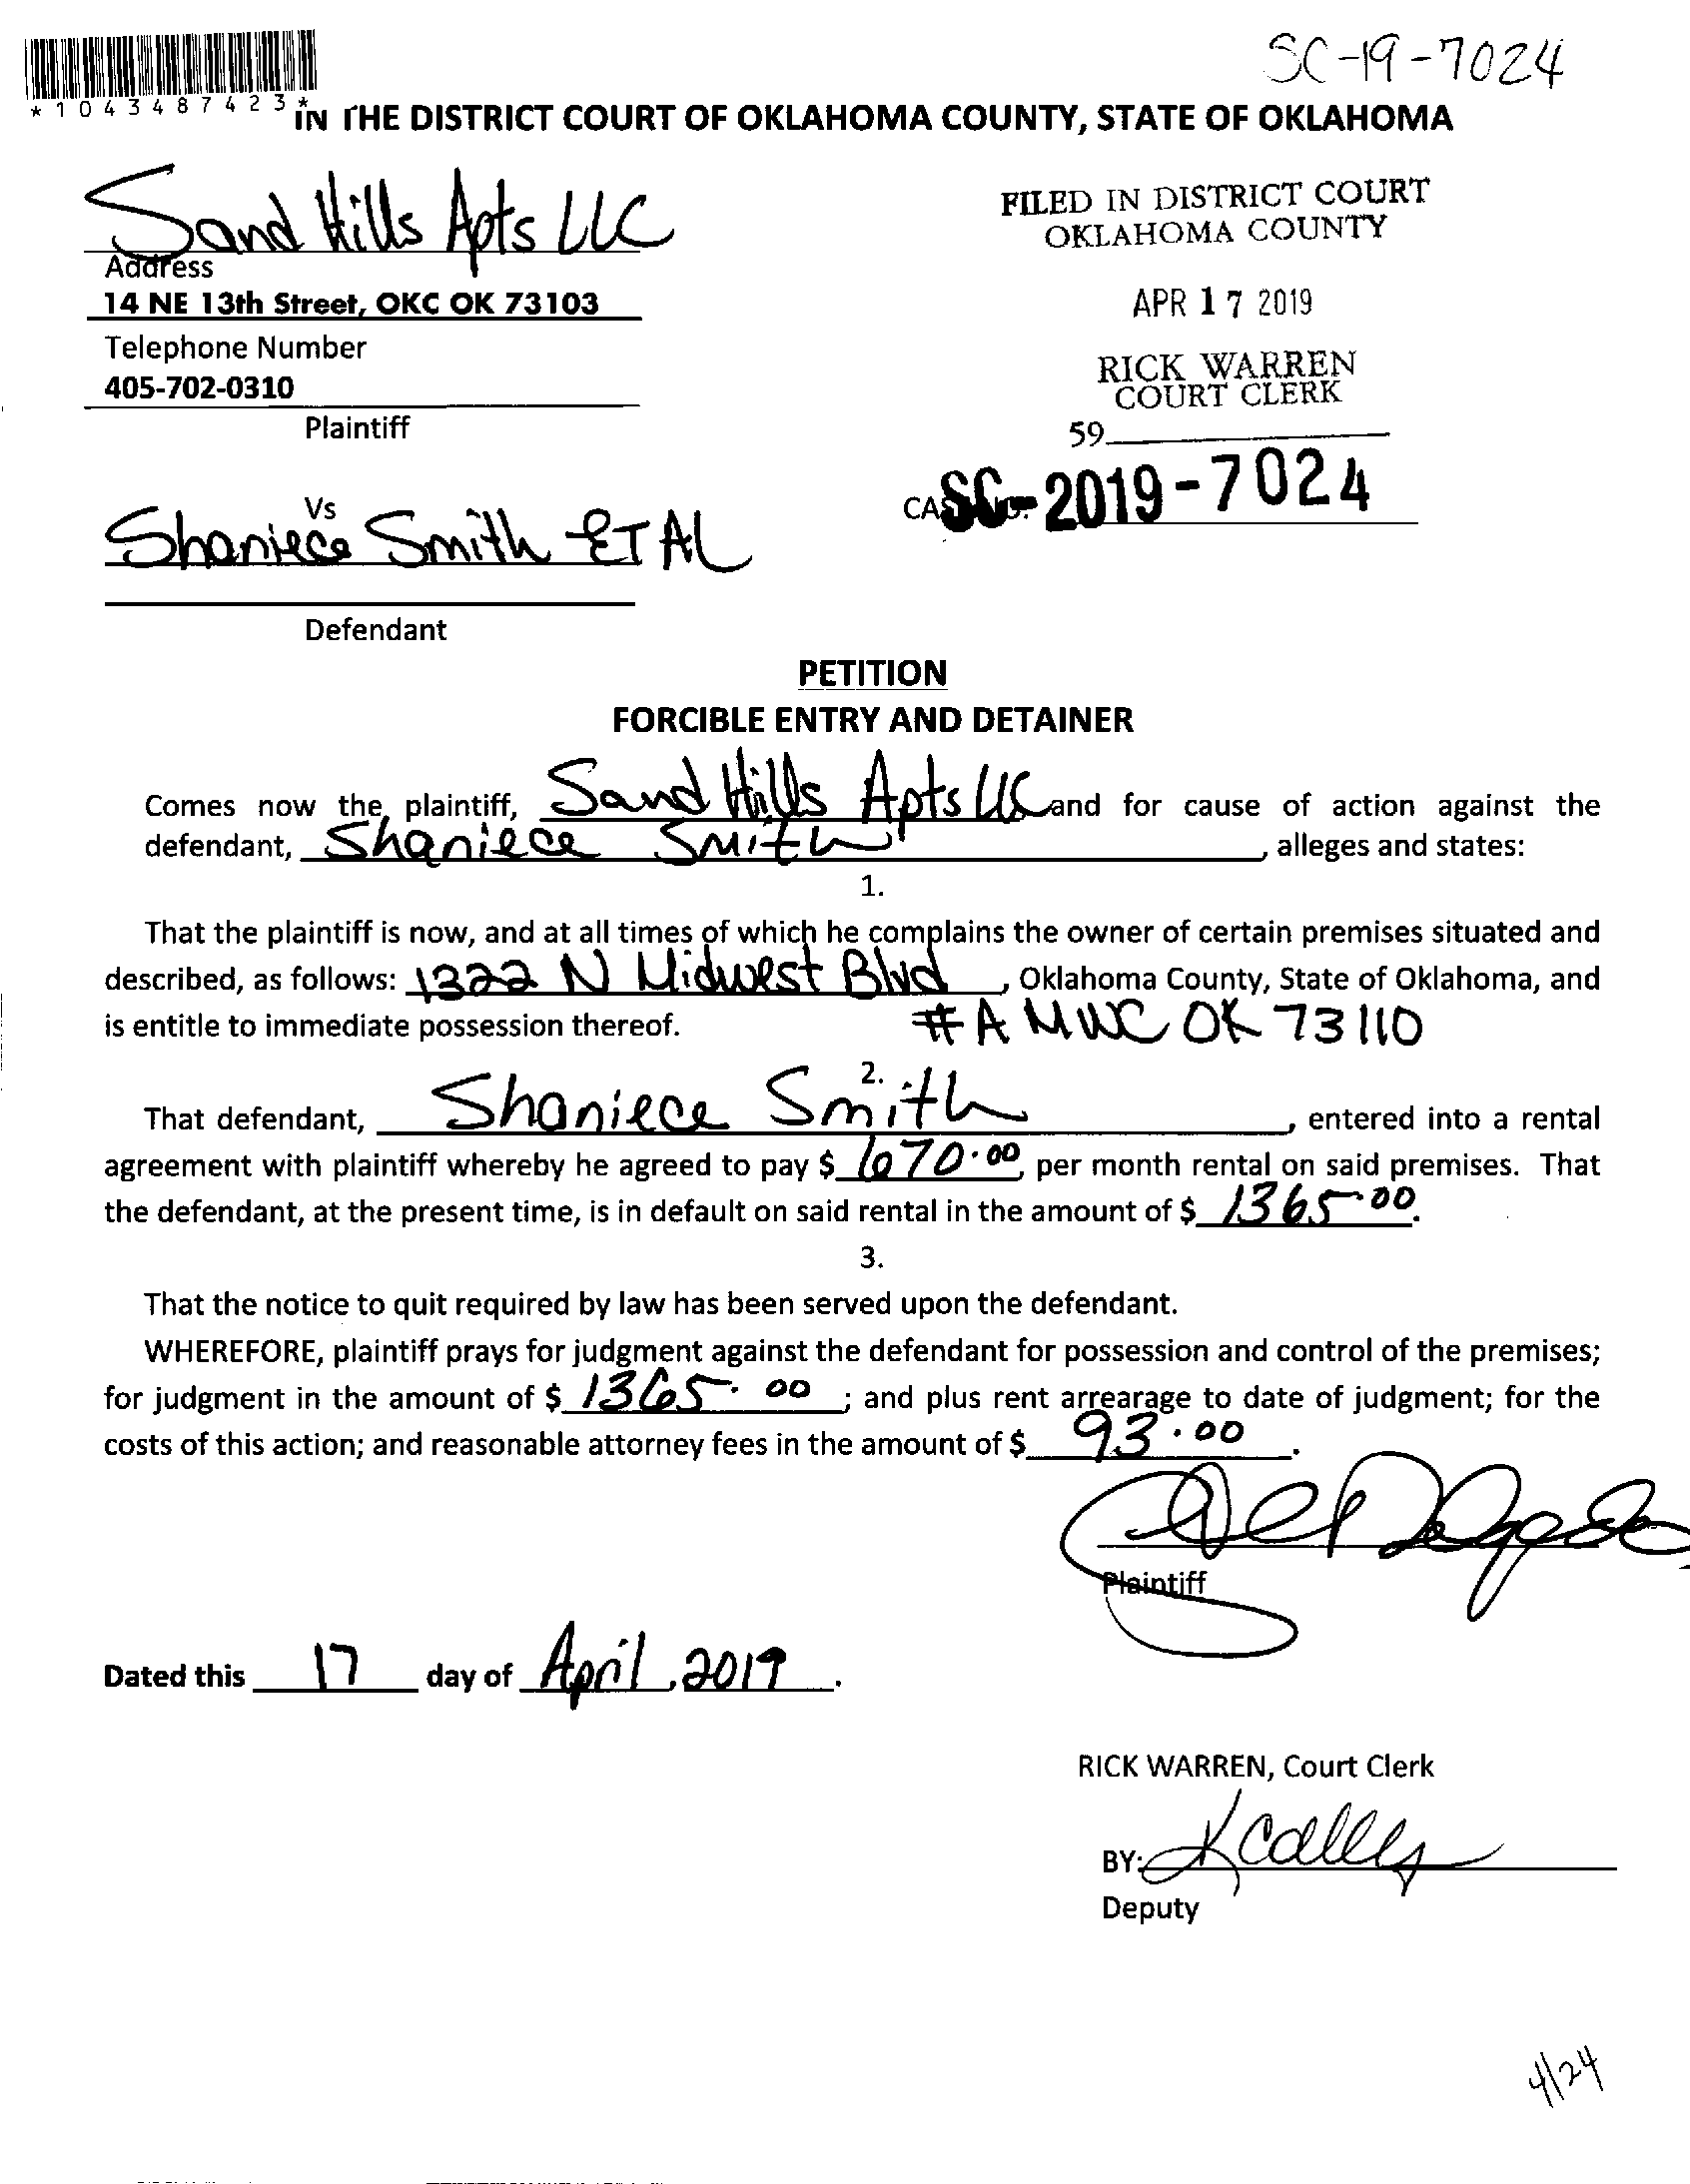 SC-19-7024
*1043487423*
IN THE DISTRICT COURT OF OKLAHOMA COUNTY, STATE OF OKLAHOMA
Sand Hills Apts LLC
Address
14 NE 13th Street, OKC OK 73103
Telephone Number
405-702-0310
Plaintiff
FILED IN DISTRICT COURT
OKLAHOMA COUNTY
APR 17 2019
RICK WARREN
COURT CLERK
59
SC-2019-7024
Vs
Shaniece Smith ET AL
Defendant
PETITION
FORCIBLE ENTRY AND DETAINER
Comes now the plaintiff, Sand Hills Apts LLC and for cause of action against the
defendant, Shaniece Smith, alleges and states:
1.
That the plaintiff is now, and at all times of which he complains the owner of certain premises situated and
described, as follows: 1322 N Midwest Blvd, Oklahoma County, State of Oklahoma, and
is entitle to immediate possession thereof. #A MWC OK 73110
2.
That defendant, Shaniece Smith, entered into a rental
agreement with plaintiff whereby he agreed to pay $ 670.00, per month rental on said premises. That
the defendant, at the present time, is in default on said rental in the amount of $ 1365.00.
3.
That the notice to quit required by law has been served upon the defendant.
WHEREFORE, plaintiff prays for judgment against the defendant for possession and control of the premises;
for judgment in the amount of $ 1365.00; and plus rent arrearage to date of judgment; for the
costs of this action; and reasonable attorney fees in the amount of $ 93.00.
Plaintiff
Dated this 17 day of April, 2019.
RICK WARREN, Court Clerk
BY:
Deputy
4/24